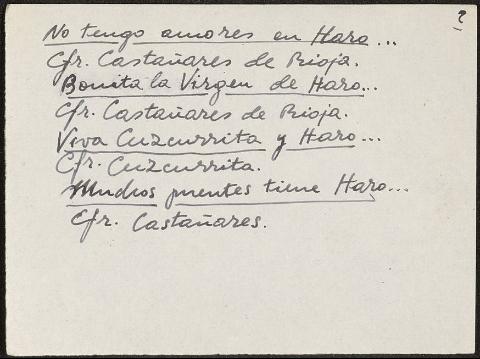 2
No tengo amores en Haro...
Cfr. Castañares de Rioja.
Bonita la Virgen de Haro...
Cfr. Castañares de Rioja.
Viva Cuzcurrita y Haro...
Cfr. Cuzcurrita.
Muchos puentes tiene Haro...
Cfr. Castañares.